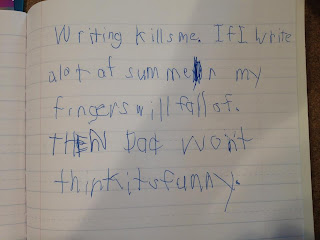 Writing kills me. If I write
alot of summer in my
fingers will fall of.
THEN Dad won't
think its funny.